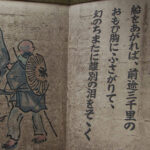 船をあがれば、前途三千里の
おもひ胸にふさがりて、
幻のちまたに離別の泪をそゝぐ